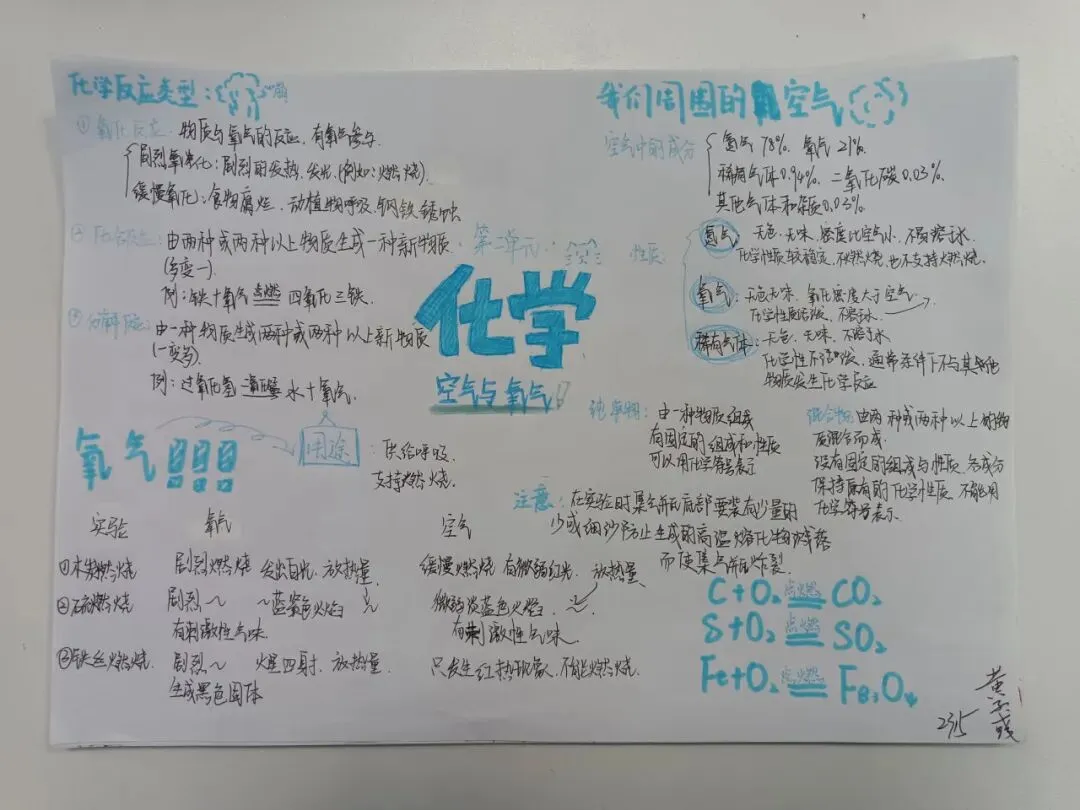 化学反应类型:
① 氧化反应: 物质与氧气的反应, 有氧气参与.
剧烈氧化: 剧烈的发热、发光(例如: 燃烧).
缓慢氧化: 食物腐烂、动植物呼吸、钢铁锈蚀
② 化合反应: 由两种或两种以上物质生成一种新物质.
(多变一)
例: 铁+氧气 点燃 四氧化三铁.
③ 分解反应: 由一种物质生成两种或两种以上新物质
(一变多).
例: 过氧化氢 水+氧气.
第二单元:
化学
空气与氧气!
我们周围的空气
空气中的成分
氮气 78%. 氧气 21%.
稀有气体0.94%. 二氧化碳 0.03%.
其他气体和杂质0.03%.
性质
氮气: 无色、无味、密度比空气小、不易溶于水.
化学性质较稳定、不燃烧、也不支持燃烧.
氧气: 无色无味、氧化密度大于空气
化学性质活泼、不易溶于水.
稀有气体: 无色、无味、不溶于水
化学性不活泼、通常条件下不与其他
物质发生化学反应
纯净物: 由一种物质组成
有固定的组成和性质
可以用化学符号表示
混合物: 由两种或两种以上的物
质混合而成.
没有固定的组成与性质、各成分
保持原有的化学性质、不能用
化学符号表示.
氧气!!!
用途: 供给呼吸
支持燃烧.
注意: 在实验时集气瓶底部要装有少量的
少或细沙防止生成的高温熔化物溅落
而使集气瓶炸裂.
实验 氧气 空气
①木炭燃烧 剧烈燃烧 发出白光、放热量 缓慢燃烧 有微弱红光、放热量
②硫燃烧 剧烈~ ~蓝紫色火焰 微弱淡蓝色火焰.
有刺激性气味. 有刺激性气味.
③铁丝燃烧. 剧烈~ 火星四射、放热量. 只发生红热现象、不能燃烧.
生成黑色固体
C+O₂ 点燃 CO₂
S+O₂ 点燃 SO₂
Fe+O₂ 点燃 Fe₃O₄
2315